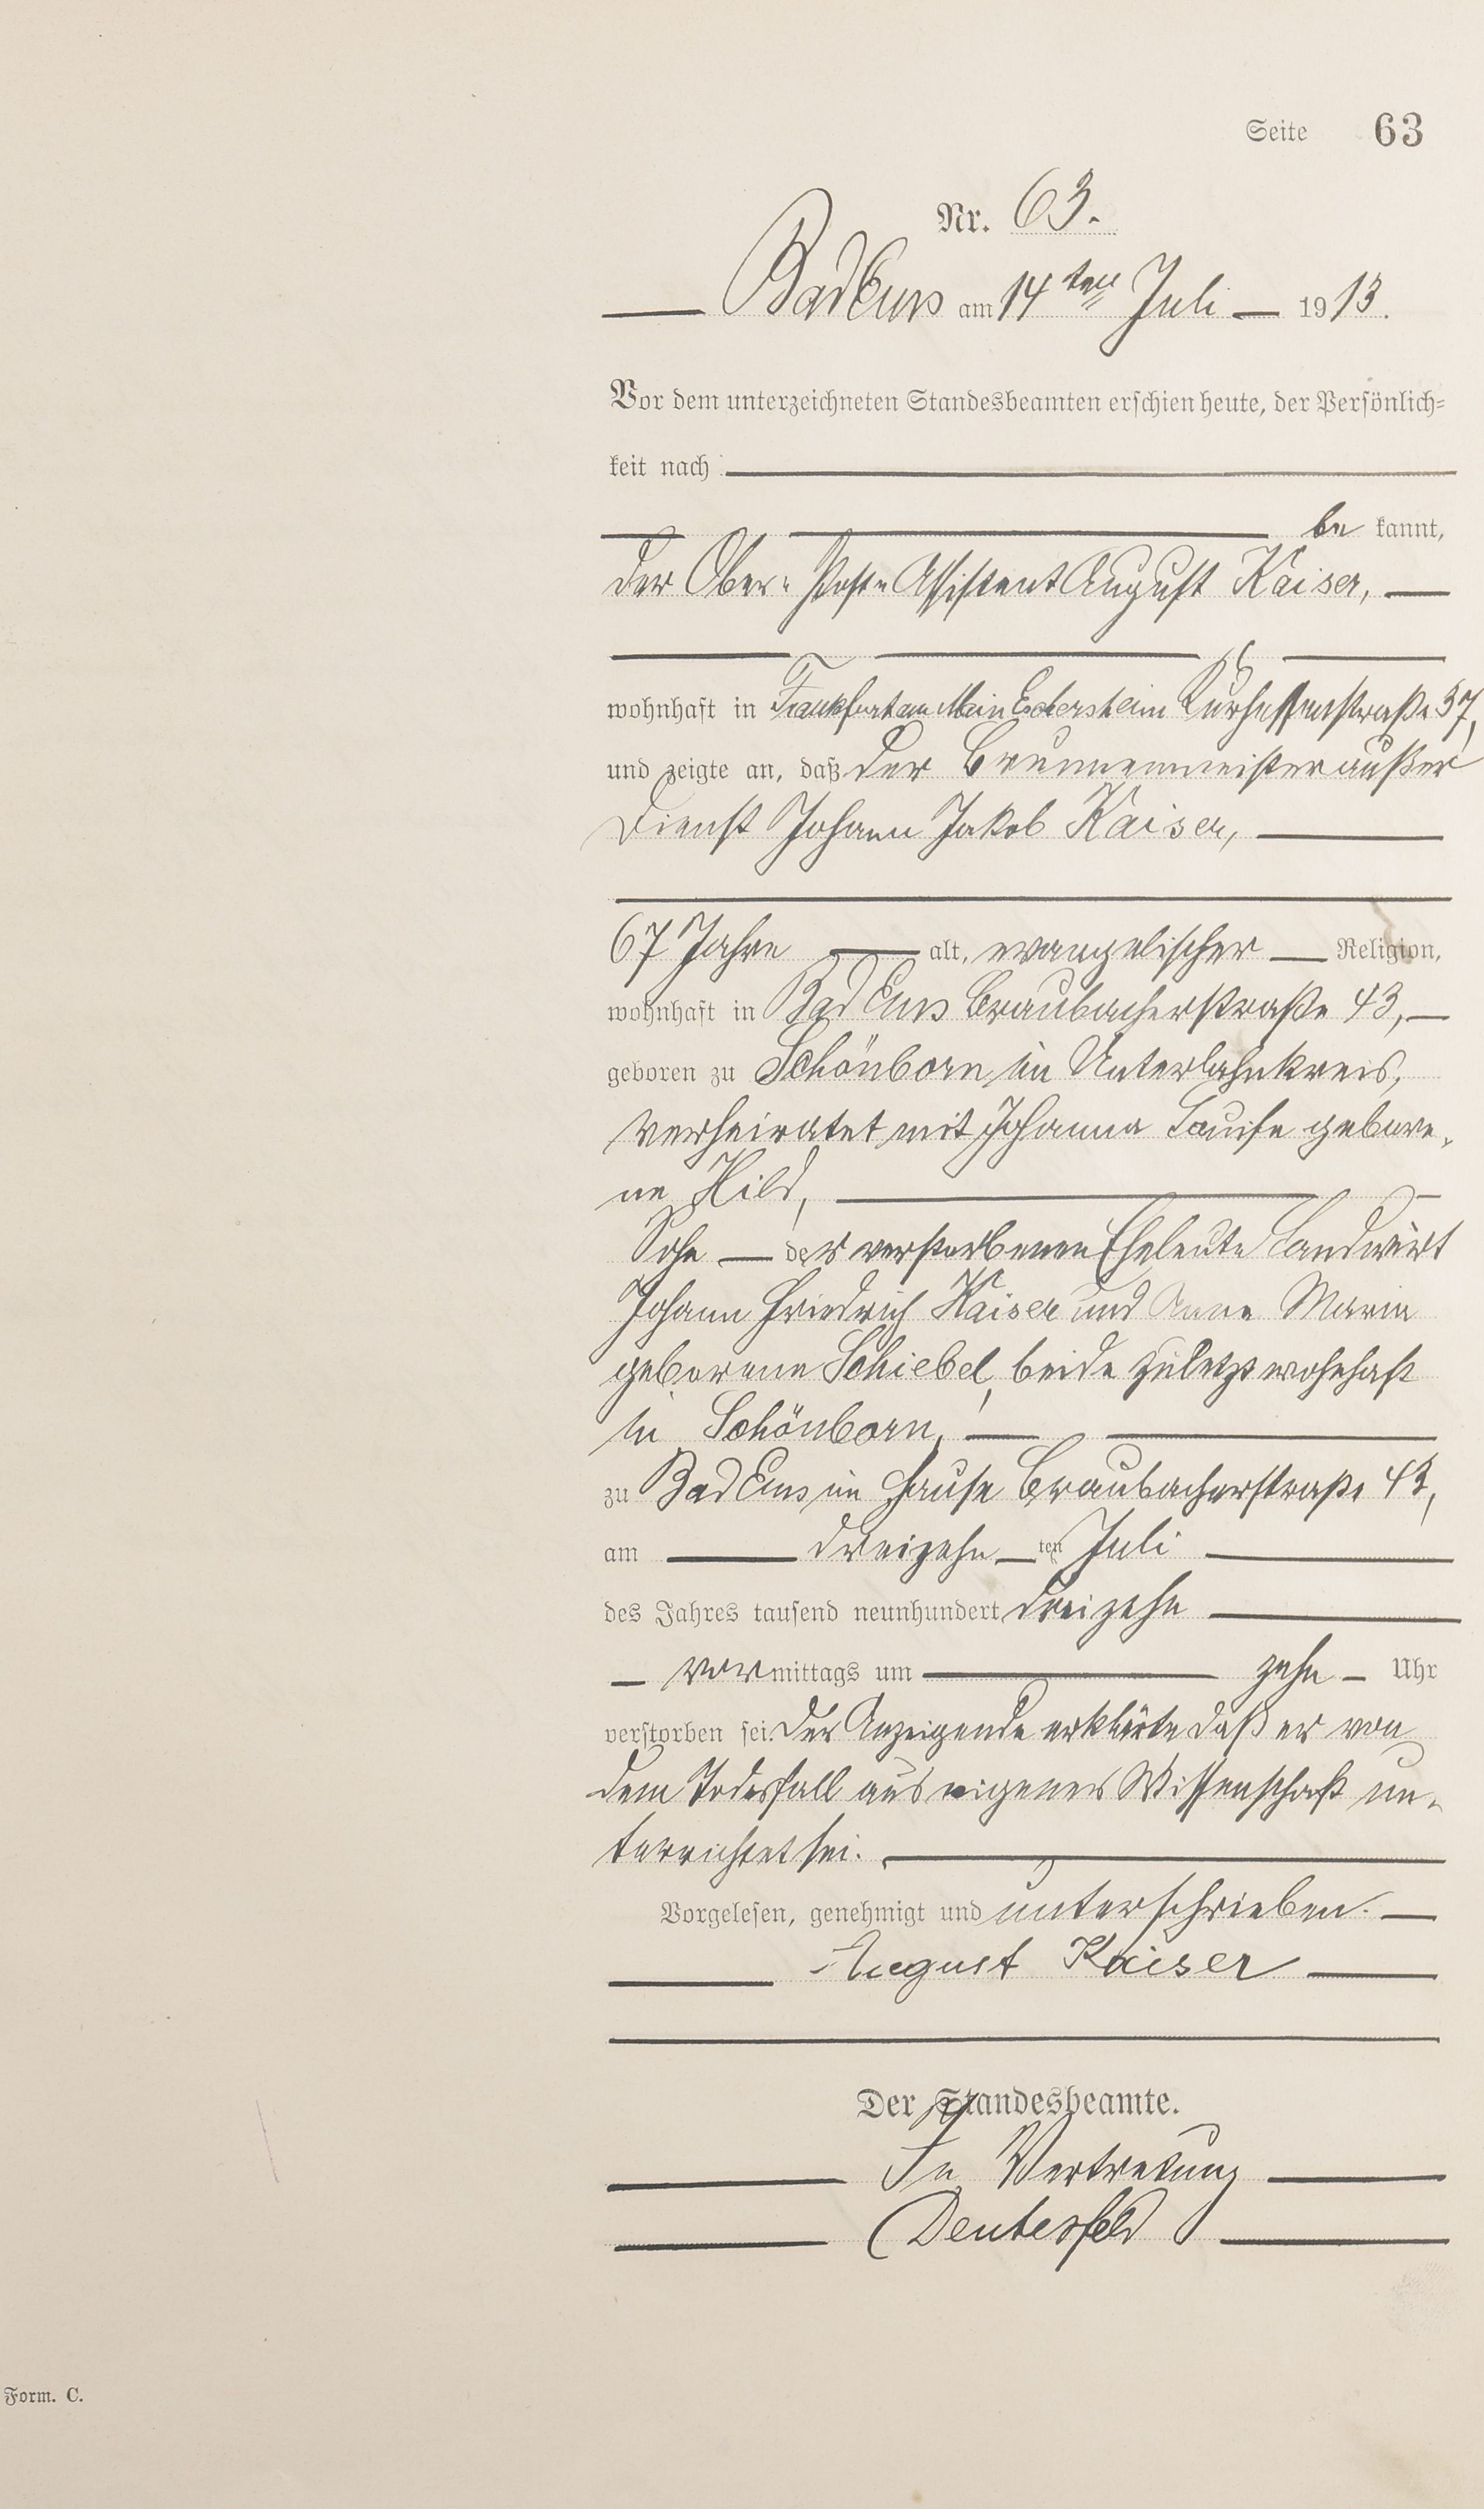 Seite 63
Nr. 63.
Bad Ems am 14ten Juli 1913.
Vor dem unterzeichneten Standesbeamten erschien heute, der Persönlich-
keit nach
be kannt,
der Ober-Post-Assistent August Kaiser,
wohnhaft in Frankfurt am Main Eckersheim Kurhessenstraße 37,
und zeigte an, daß der Brunnenmeister außer
Dienst Johann Jakob Kaiser,
67 Jahre alt, evangelischer Religion,
wohnhaft in Bad Ems Braubacherstraße 43,
geboren zu Schönborn im Unterlahnkreis,
verheiratet mit Johanna Louise gebore-
ne Hild,
Sohn der verstorbenen Eheleute Landwirt
Johann Friedrich Kaiser und Anne Maria
geborene Schiebel, beide zuletzt wohnhaft
in Schönborn,
zu Bad Ems im Hause Braubacherstraße 43,
am dreizehn ten Juli
des Jahres tausend neunhundert dreizehn
vor mittags um zehn Uhr
verstorben sei. Der Anzeigende erklärte daß er von
dem Todesfall aus eigener Wissenschaft un-
terrichtet sei.
Vorgelesen, genehmigt und unterschrieben.
August Kaiser
Der Standesbeamte.
In Vertretung
Deutesfeld
Form. C.